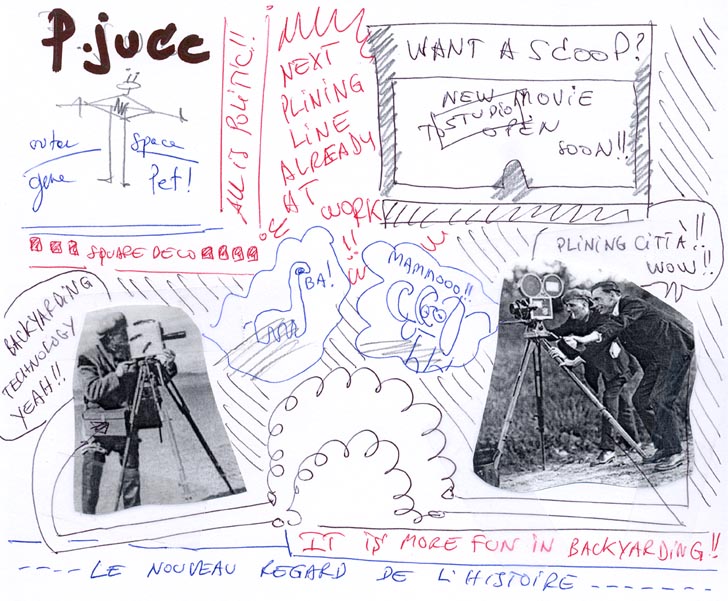 P.jucc
outer space
gene Pet!
ALL IS POLITIC!!
NEXT
PLINING
LINE
ALREADY
AT
WORK!!
WANT A SCOOP?
NEW MOVIE
STUDIO
TO OPEN
SOON!!
SQUARE DECO
BA!
MAMAOOO!!
PLINING CITTÀ!!
WOW!!
BACKYARDING
TECHNOLOGY
YEAH!!
IT IS MORE FUN IN BACKYARDING!!
LE NOUVEAU REGARD DE L'HISTOIRE